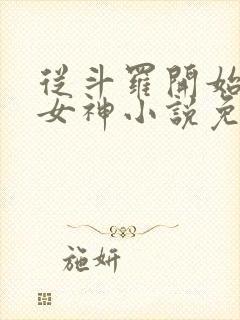 從斗羅開始
女神小說免
施妍